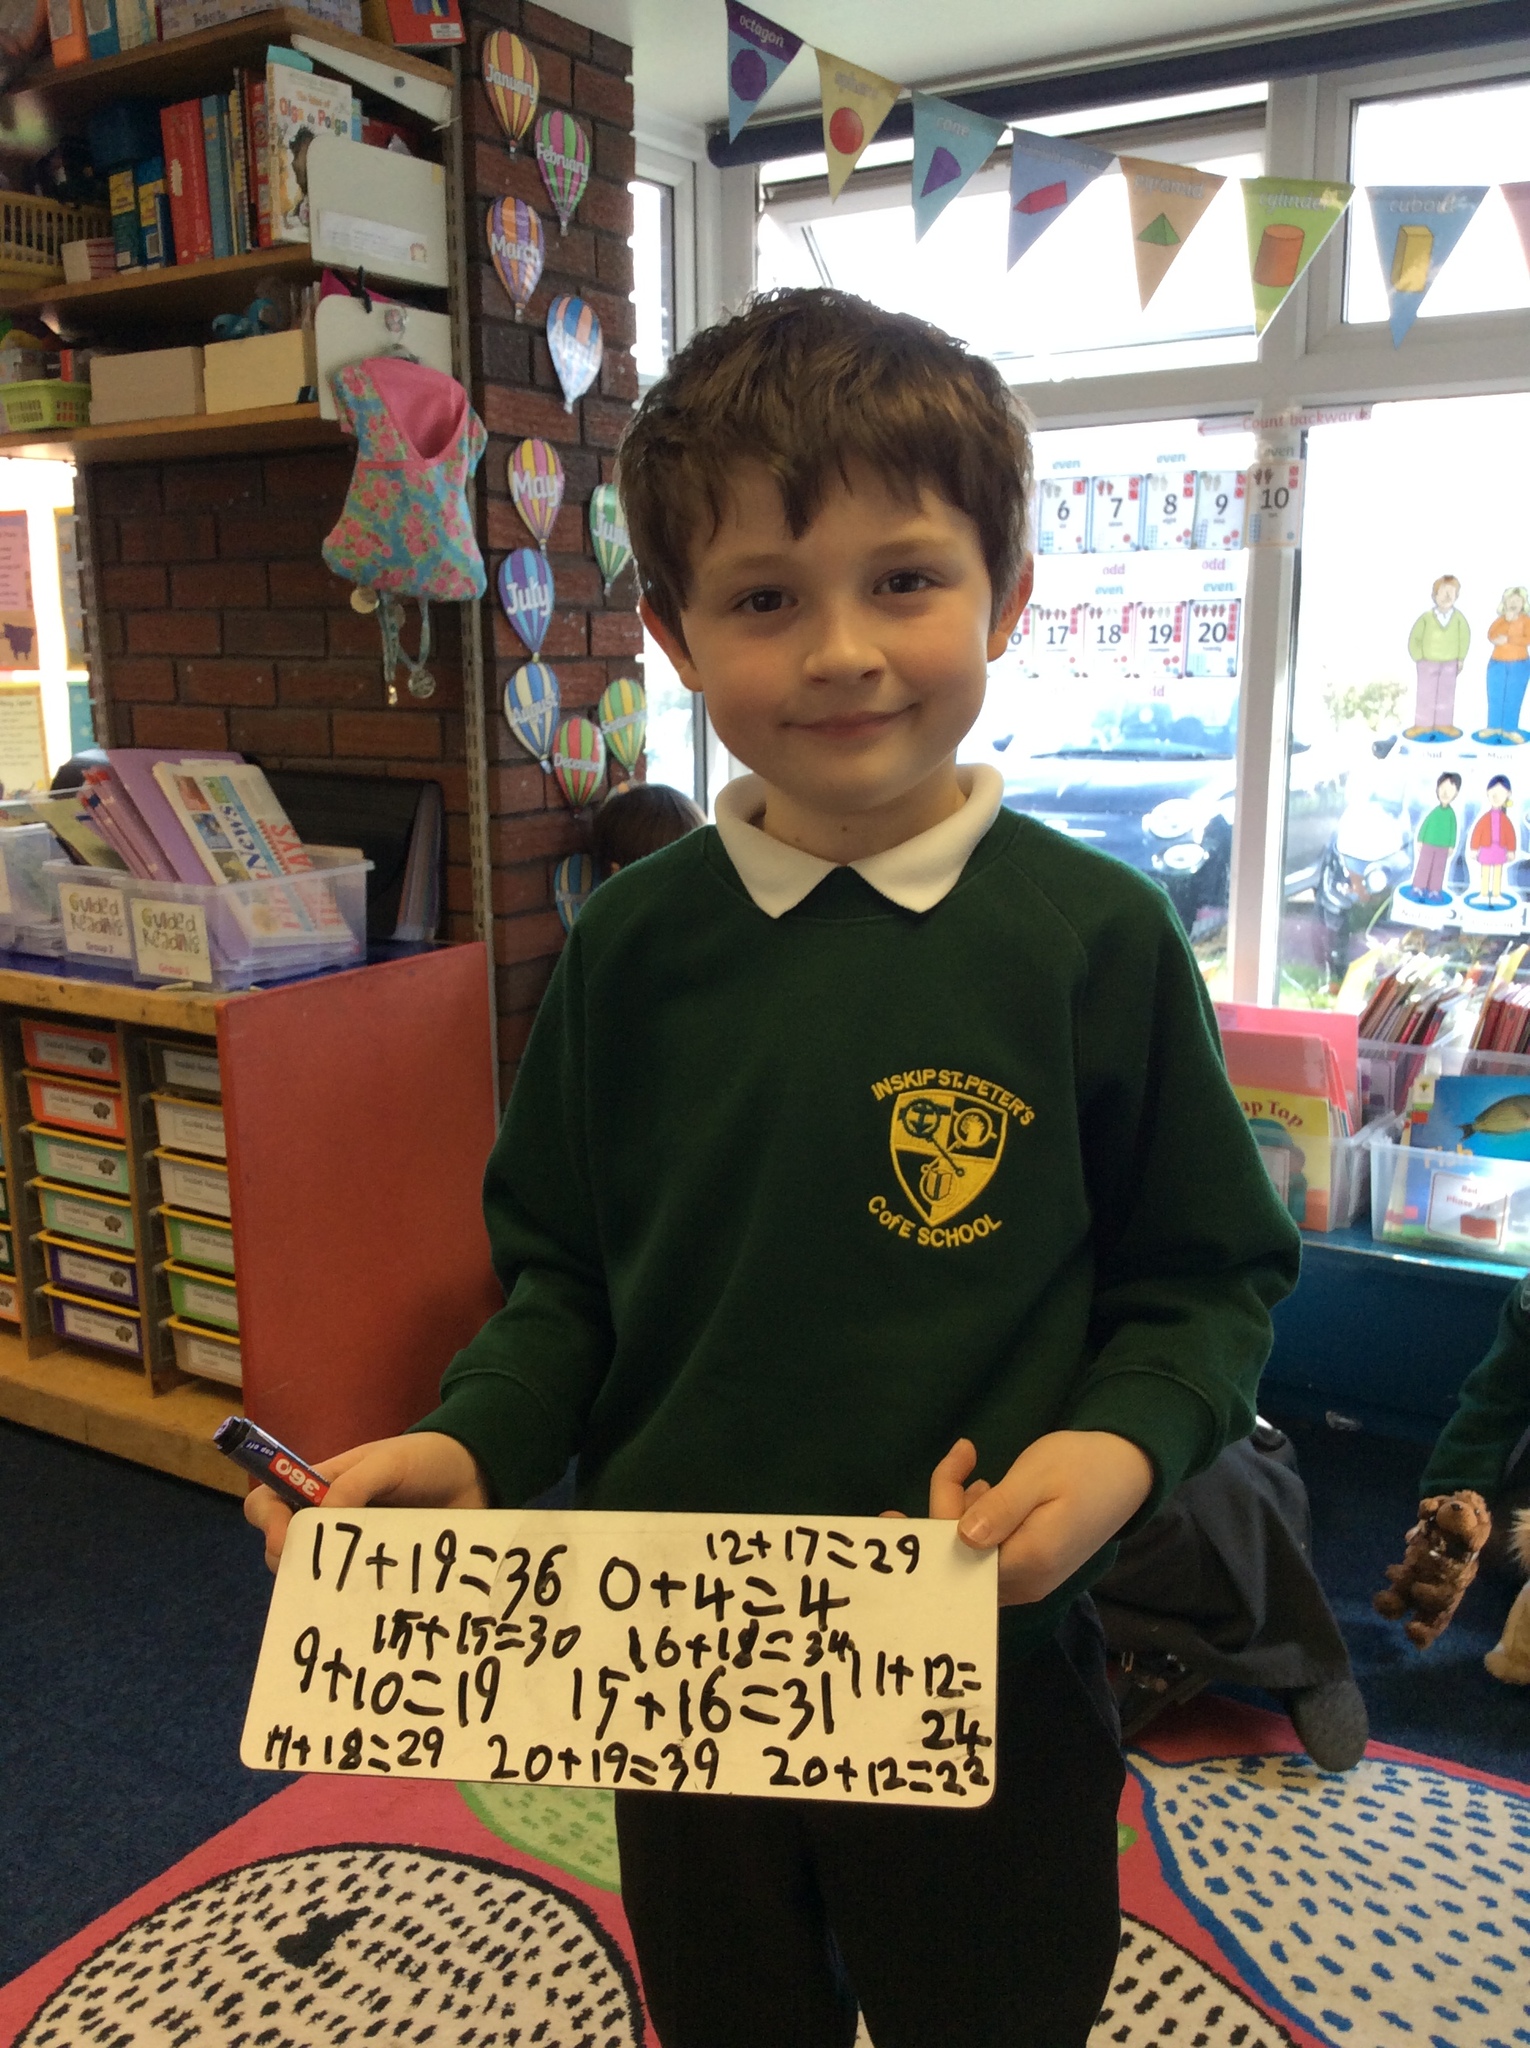 octagon
cone
pyramid
cylinder
cuboid
January
February
March
May
July
August
December
Olga da Polga
Count backwards
even
even
even
6
7
8
9
10
odd
odd
even
even
17
18
19
20
News
Guided Reading
Group 2
Guided Reading
Group 1
INSKIP ST. PETER'S
C of E SCHOOL
Tap
Fish
cap off
360
17+19=36
12+17=29
0+4=4
15+15=30
16+18=34
9+10=19
15+16=31
11+12=
24
11+18=29
20+19=39
20+12=22